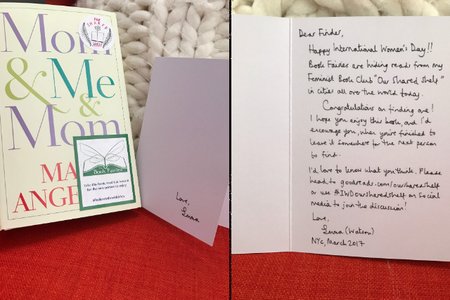 Mom
& Me
&
Mom
MA
ANGE
Book Fairies
Love,
Emma
Dear Finder,
Happy International Women's Day!!
Book Fairies are hiding reads from my
Feminist Book Club "Our Shared Shelf"
in cities all over the world today.
Congratulations on finding one!
I hope you enjoy this book, and I'd
encourage you, when you're finished to
leave it somewhere for the next person
to find.
I'd love to know what you think. Please
head to goodreads.com/oursharedshelf
or use #IWDoursharedshelf on social
media to join the discussion!
Love,
Emma (Watson)
NYC, March 2017